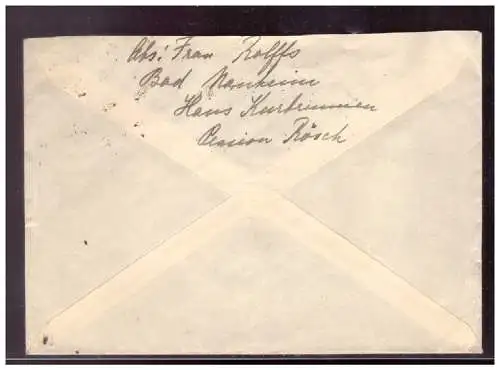 Abs: Frau Rolffs
Bad Nauheim
Haus Kurbrunnen
Pension Rösch